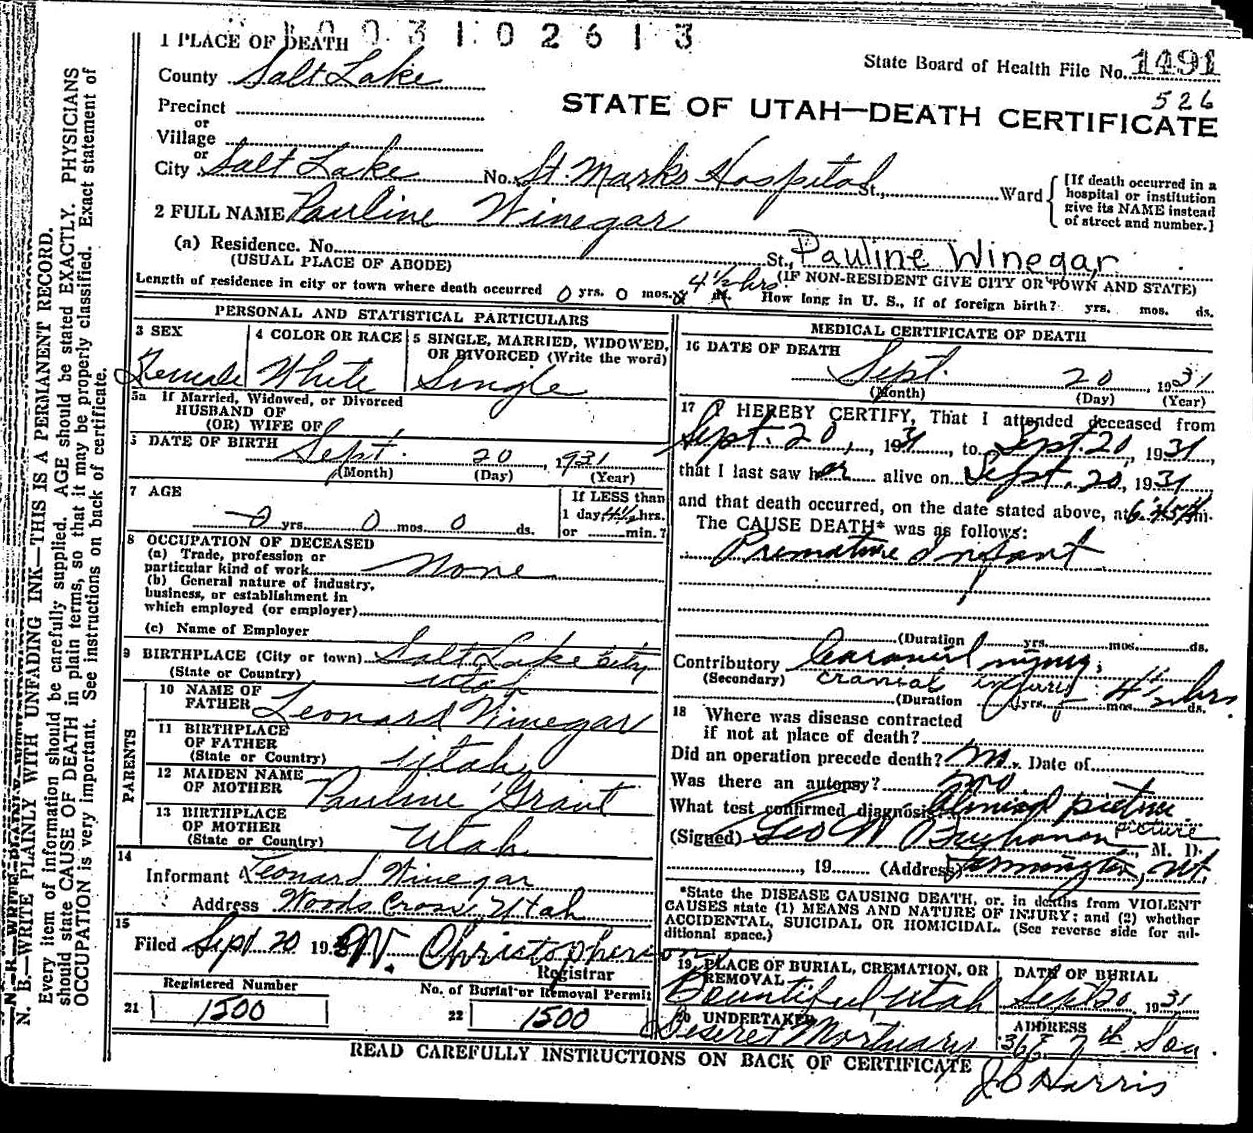 1003102613
1 PLACE OF DEATH
State Board of Health File No. 1491
County Salt Lake
526
Precinct
STATE OF UTAH—DEATH CERTIFICATE
or
Village
or
City Salt Lake No. St. Marks Hospital St., Ward [If death occurred in a
hospital or institution
give its NAME instead
of street and number.]
2 FULL NAME Pauline Winegar
(a) Residence. No. St., Pauline Winegar
(USUAL PLACE OF ABODE) (IF NON-RESIDENT GIVE CITY OR TOWN AND STATE)
Length of residence in city or town where death occurred 0 yrs. 0 mos. 4½ hrs ds. How long in U. S., if of foreign birth? yrs. mos. ds.
PERSONAL AND STATISTICAL PARTICULARS
3 SEX 4 COLOR OR RACE 5 SINGLE, MARRIED, WIDOWED,
OR DIVORCED (Write the word)
Female White Single
5a If Married, Widowed, or Divorced
HUSBAND OF
(OR) WIFE OF
DATE OF BIRTH Sept. 20, 1931
(Month) (Day) (Year)
7 AGE If LESS than
0 yrs. 0 mos. 0 ds. 1 day, 4½ hrs.
or min.?
8 OCCUPATION OF DECEASED
(a) Trade, profession or
particular kind of work None
(b) General nature of industry,
business, or establishment in
which employed (or employer)
(c) Name of Employer
9 BIRTHPLACE (City or town) Salt Lake City
(State or Country) Utah
PARENTS
10 NAME OF
FATHER Leonard Winegar
11 BIRTHPLACE
OF FATHER
(State or Country) Utah
12 MAIDEN NAME
OF MOTHER Pauline Grant
13 BIRTHPLACE
OF MOTHER
(State or Country) Utah
14
Informant Leonard Winegar
Address Woods Cross, Utah
15
Filed Sept 20 1931 W. Christopherson
Registrar
Registered Number No. of Burial or Removal Permit
21 1500 22 1500
MEDICAL CERTIFICATE OF DEATH
16 DATE OF DEATH
Sept. 20, 1931
(Month) (Day) (Year)
17 I HEREBY CERTIFY, That I attended deceased from
Sept. 20, 1931, to Sept. 20, 1931,
that I last saw her alive on Sept. 20, 1931
and that death occurred, on the date stated above, at 6:45 m.
The CAUSE DEATH* was as follows:
Premature Infant
(Duration yrs. mos. ds.
Contributory Cranial injury,
(Secondary) cranial injury
(Duration yrs. mos. 4½ hrs ds.
18 Where was disease contracted
if not at place of death?
Did an operation precede death? no. Date of
Was there an autopsy? no
What test confirmed diagnosis? Clinical picture
picture
(Signed) Geo W Buchanan, M. D.
, 19 (Address) Farmington, Ut
*State the DISEASE CAUSING DEATH, or, in deaths from VIOLENT
CAUSES state (1) MEANS AND NATURE OF INJURY; and (2) whether
ACCIDENTAL, SUICIDAL OR HOMICIDAL. (See reverse side for ad-
ditional space.)
19 PLACE OF BURIAL, CREMATION, OR
REMOVAL DATE OF BURIAL
Bountiful, Utah Sept 20 1931
20 UNDERTAKER ADDRESS
Deseret Mortuary 36 E 7th Sou
READ CAREFULLY INSTRUCTIONS ON BACK OF CERTIFICATE
J C Harris
N. B.—WRITE PLAINLY WITH UNFADING INK—THIS IS A PERMANENT RECORD.
Every item of information should be carefully supplied. AGE should be stated EXACTLY. PHYSICIANS
should state CAUSE OF DEATH in plain terms, so that it may be properly classified. Exact statement of
OCCUPATION is very important. See instructions on back of certificate.